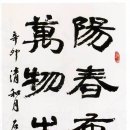 陽春布
萬物生
辛卯清和月